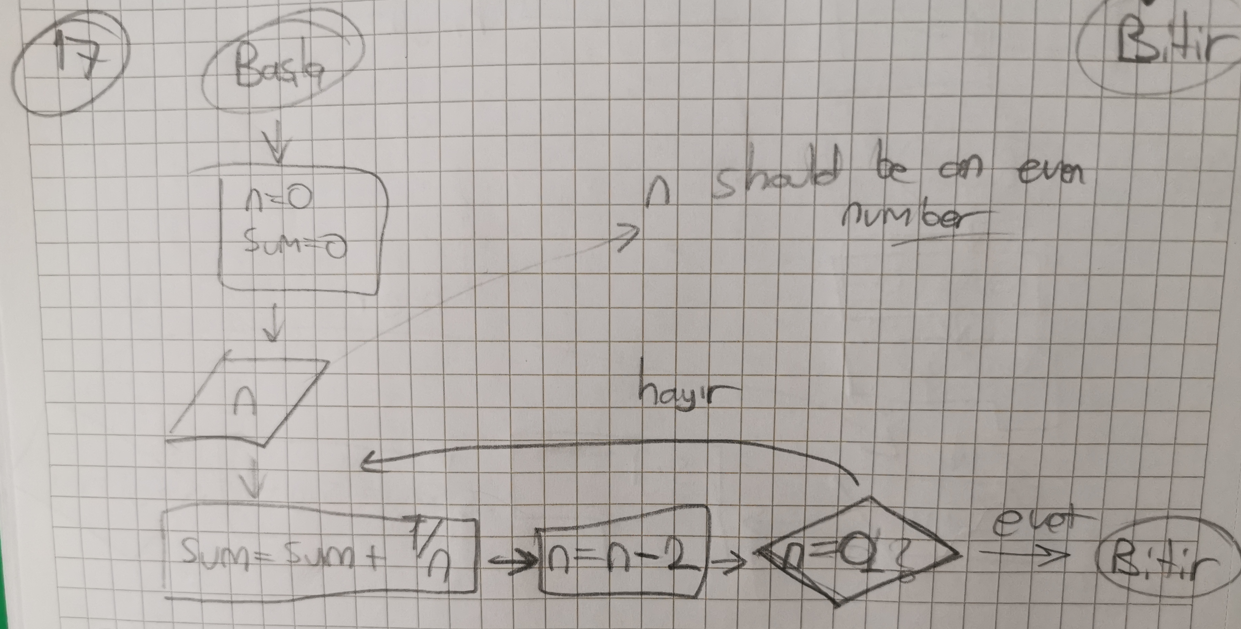 17
Başla
Bitir
n=0
Sum=0
n should be an even
number
n
hayır
Sum=Sum+ 1/n
n=n-2
n=0?
evet
Bitir